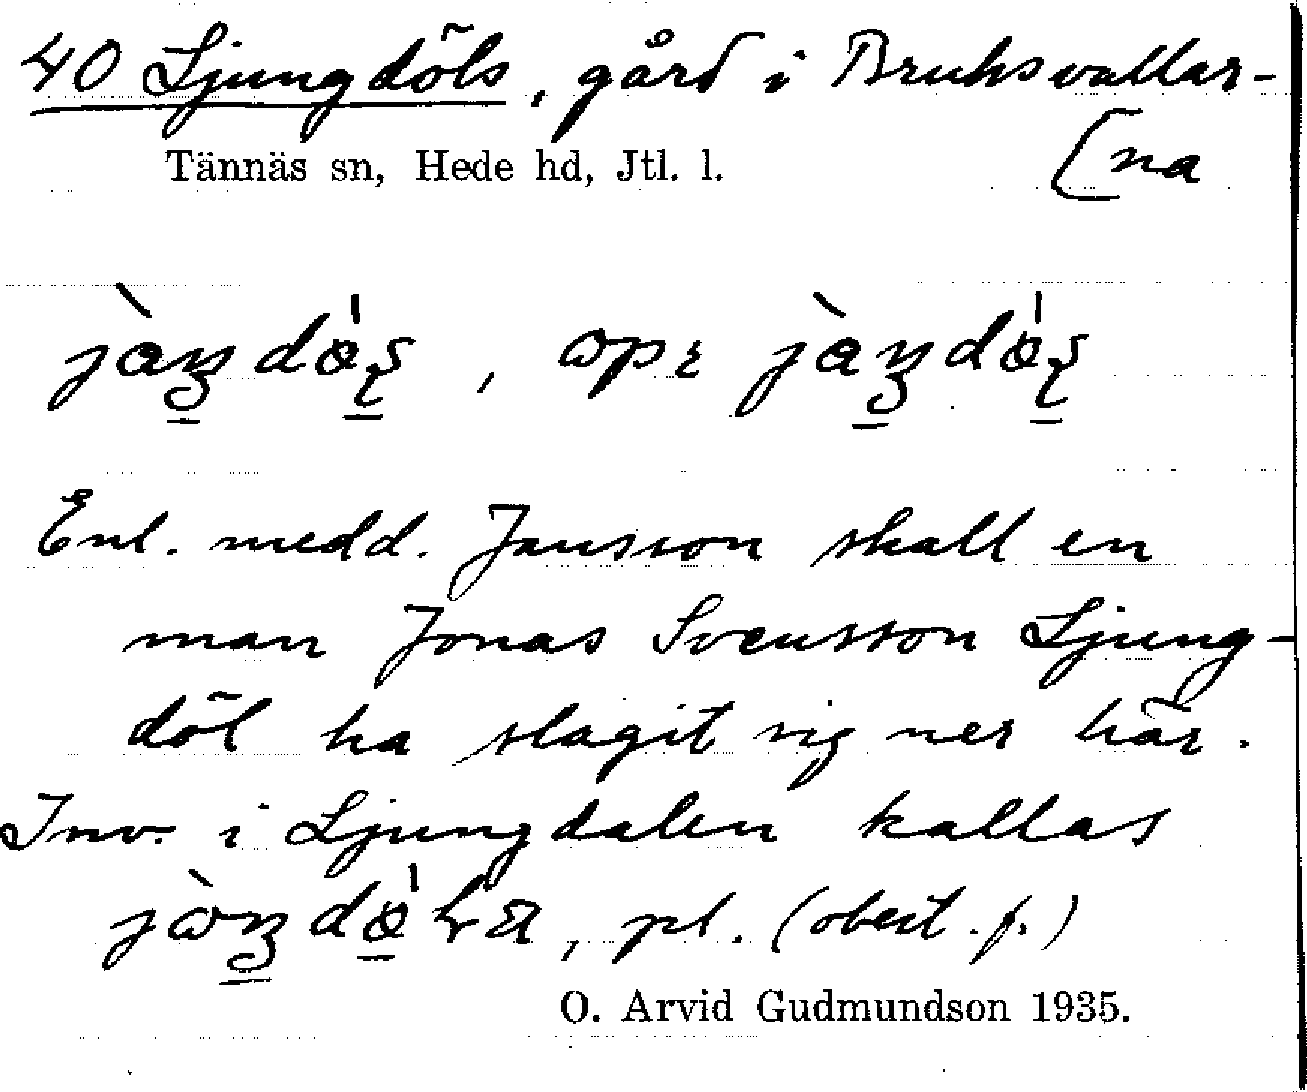 40 Ljungdöls, gård i Bruksvallar-
[na
Tännäs sn, Hede hd, Jtl. l.
Enl. medd. Jansson skall en
man Jonas Svensson Ljung-
döl ha slagit sig ner här.
Inv. i Ljungdalen kallas
, pl. (obest. f.)
O. Arvid Gudmundson 1935.